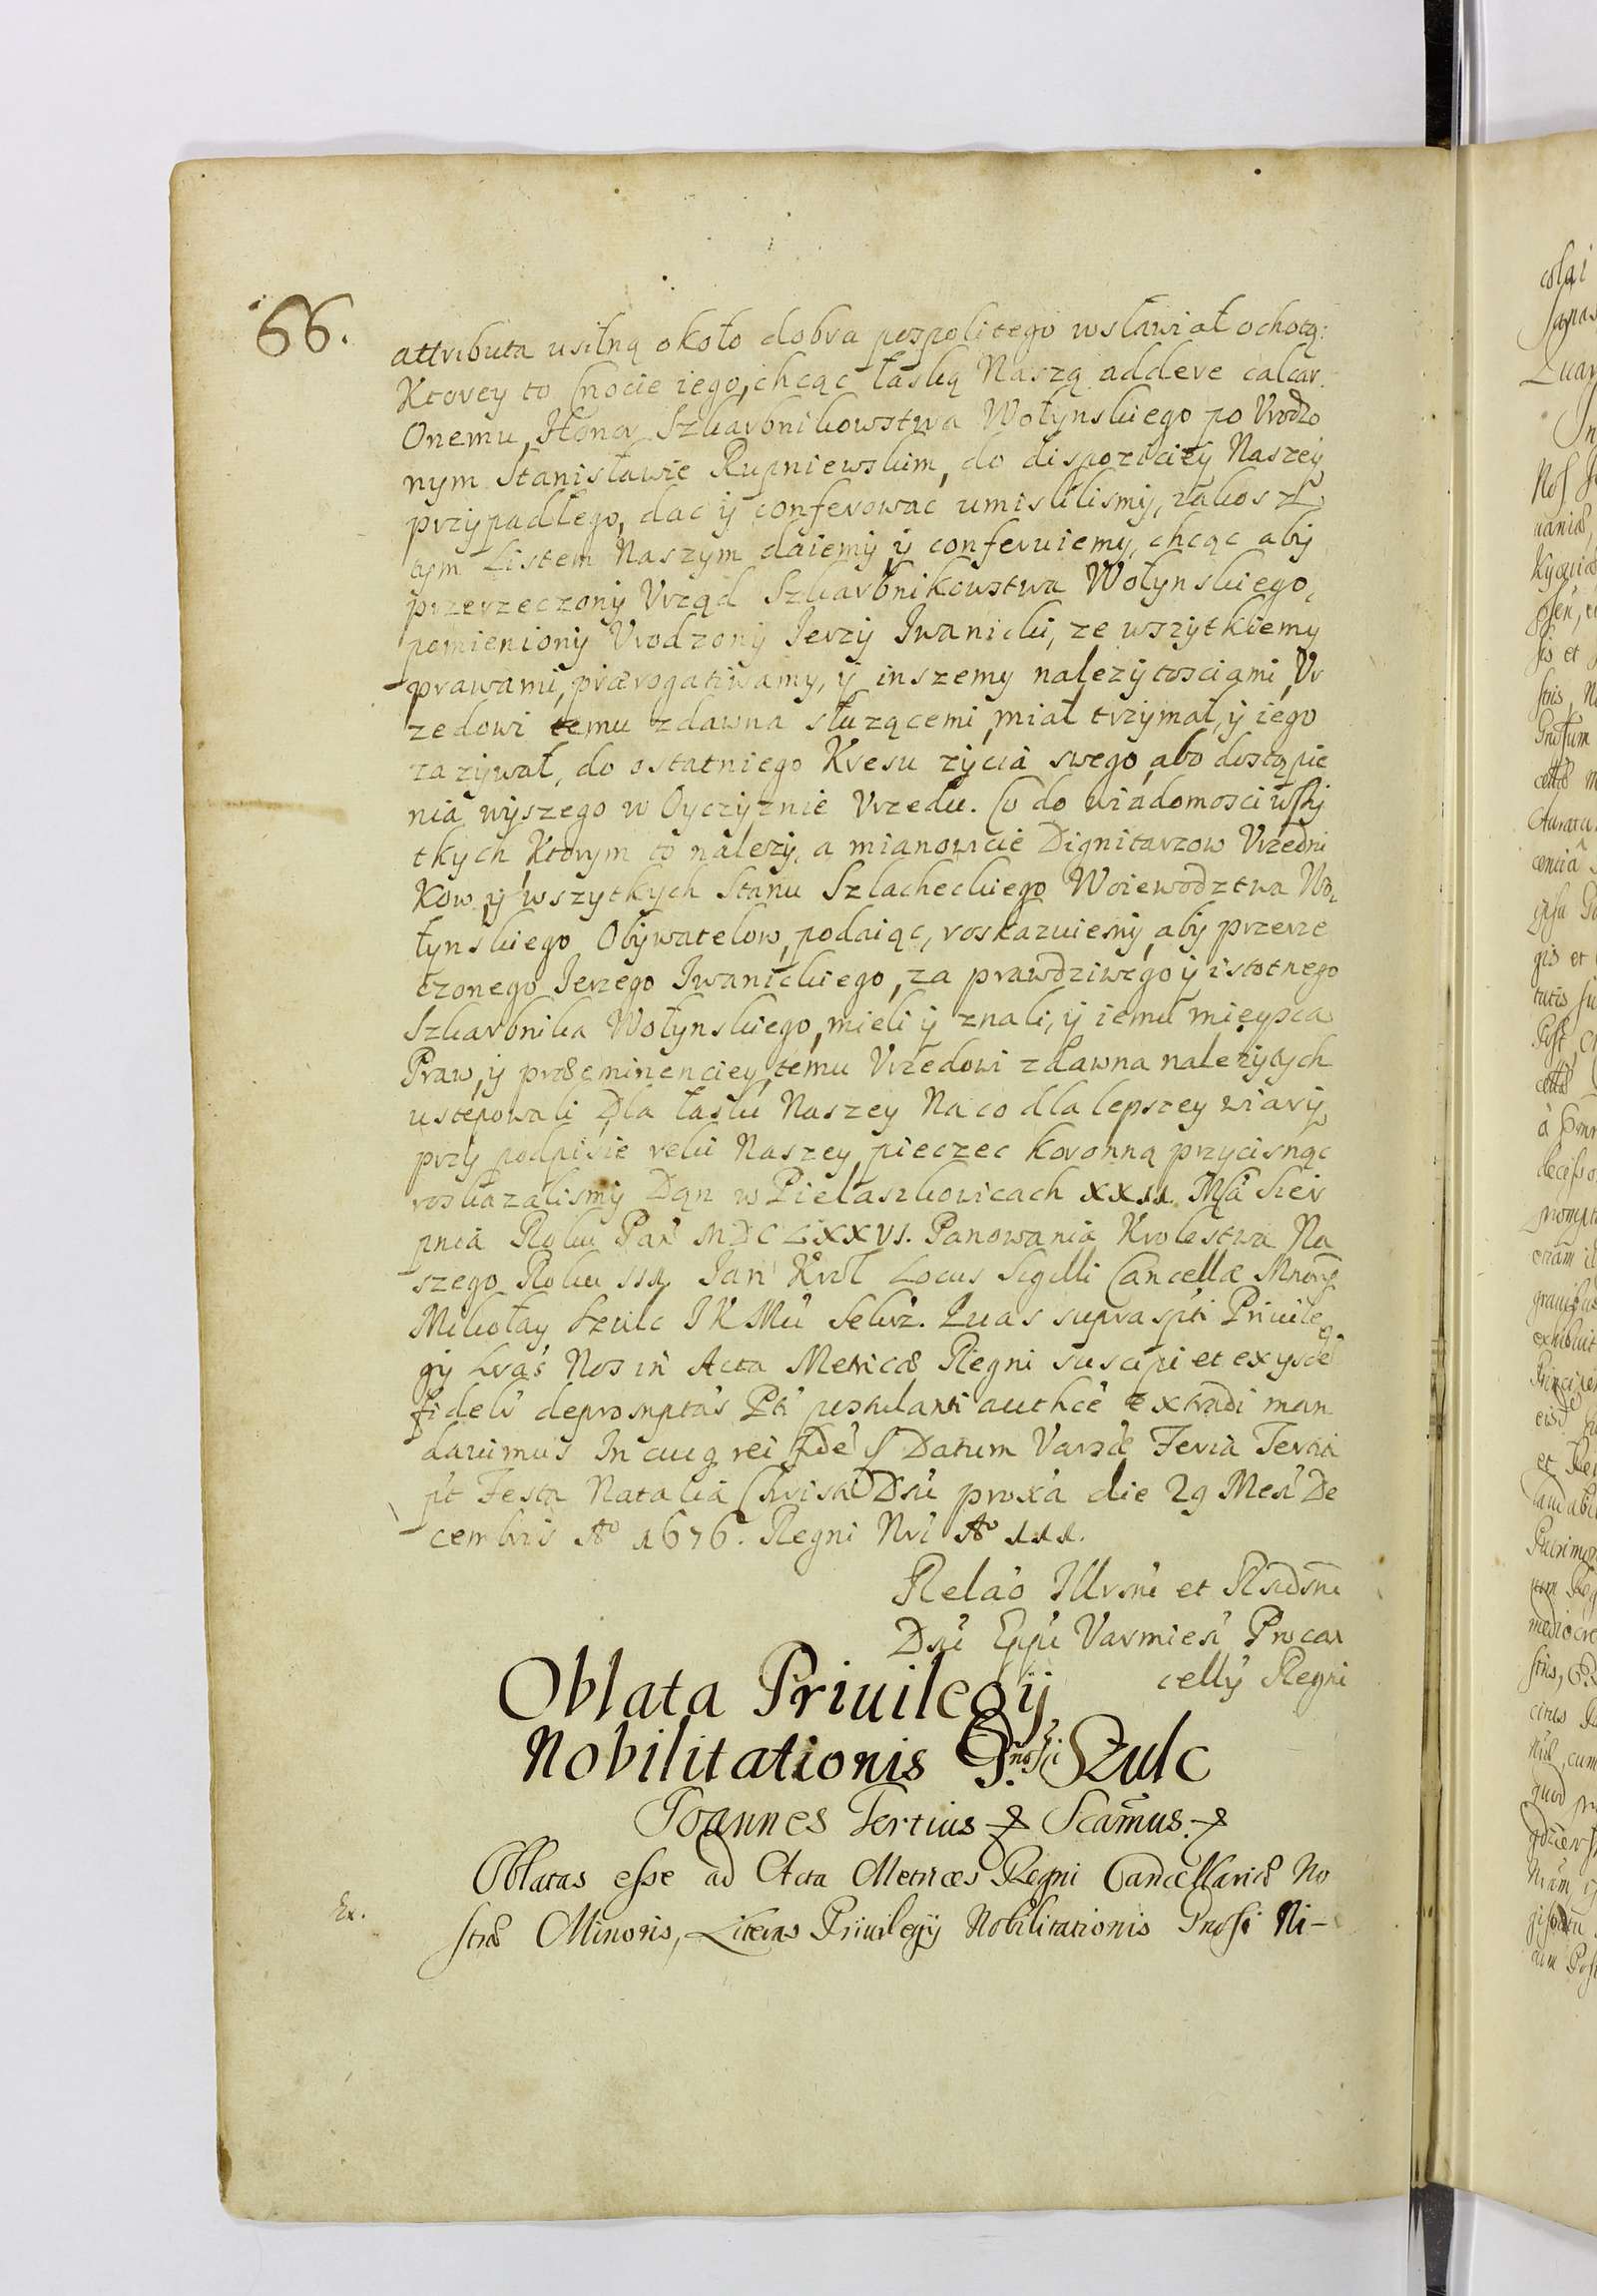 66.
attributa usilną około dobra pospolitego wsławiał ochotą:
Ktorey to Cnocie iego, chcąc łaską Naszą addere calcar.
Onemu, Honor Szkarbnikowstwa Wołynskiego po Vrodzo
nym Stanisławie Rupniewskim, do dispoziciey Naszey
przypadłego, dac ÿ conferowac umislilismÿ, iakosz
tym Listem Naszym daiemÿ ÿ conferuiemy, chcąc abÿ
przerzeczonÿ Vrząd Szkarbnikowstwa Wołynskiego,
pomienionÿ Vrodzonÿ Jerzÿ Iwanicki, ze wszÿtkiemy
prawami, prærogatiwamy, ÿ inszemy należÿtosciami, Vr
zedowi temu zdawna słuzącemi, miał trzÿmał, ÿ iego
zazÿwał, do ostatniego Kresu zÿcia swego, abo dostąpie
nia wÿszego w Oyczÿznie Vrzedu. Co do wiadomosci wszÿ
tkych, Ktorym to należÿ, a mianowicie Dignitarzow Vrzedni
kow, ÿ wszytkych Stanu Szlacheckiego Woiewodztwa Wo
łynskiego Obÿwatelow, podaiąc, roskazuiemÿ, abÿ przerze
czonego Jerzego Iwanickiego, za prawdziwego ÿ istotnego
Szkarbnika Wołynskiego, mieli ÿ znali, ÿ iemu mieysca
Praw, ÿ præeminenciey, temu Vrzedowi zdawna należÿtych
ustepowali Dla łaski Naszey Na co dla lepszey wiarÿ,
przÿ podpisie reki Naszey, pieczec koronną przycisnąc
roskazalismÿ Dan w Pielaszkowicach XXII. Msca Sier
pnia Roku Pan MDCLXXVI. Panowania Krolestwa Na
szego Roku III. Jan Krol Locus Sigilli Cancellæ Mnoris
Mikołay Szulc JKMci Sekrz. Quas suprascpti Priuile
gÿ Lras Nos in Acta Metricæ Regni suscipi et ex ysdē
fideli depromptas Pti postulanti authcē extradi man
dauimus In cuiq rei fidē S Datum Varsæ Feria Tertia
pt Festa Natalia Christi Dni proxa die 29 Mesi De
cembris Ao 1676. Regni Nri Ao III.
Relao Illrsmi et Rndsmi
Dni Eppi Varmiesi Procan
cellÿ Regni
Oblata Priuilegÿ
Nobilitationis Gnosi Szulc
Joannes Tertius Scamus.
Ex.
Oblatas esse ad Acta Metrices Regni Cancellariæ No
stræ Minoris, Literas Priuilegÿ Nobilitationis Gnosi Ni-